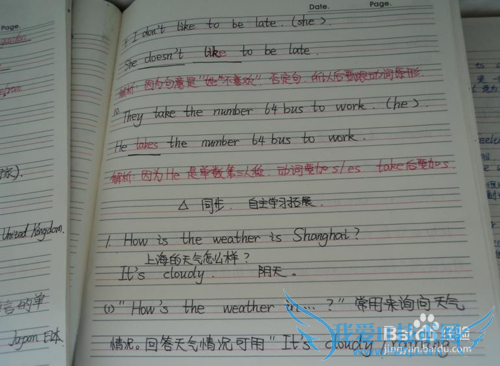 Date. Page.
Page.
I don't like to be late. (she).
She doesn't like to be late.
解析: 因为句意是"她"不喜欢", 否定句, 所以后要跟动词原形
They take the number 64 bus to work. (he).
He takes the number 64 bus to work.
解析: 因为He 是单数第三人称, 动词要加s/es take后要加s.
△ 同步. 自主学习拓展.
United Kingdom.
1. How is the weather is Shanghai?
上海的天气怎么样?
It's cloudy. 阴天。
(1) "How's the weather in…?" 常用来询问天气
Japan 日本
情况。回答天气情况可用"It's cloudy / raining
Baidu经验
jingyan.baidu.com